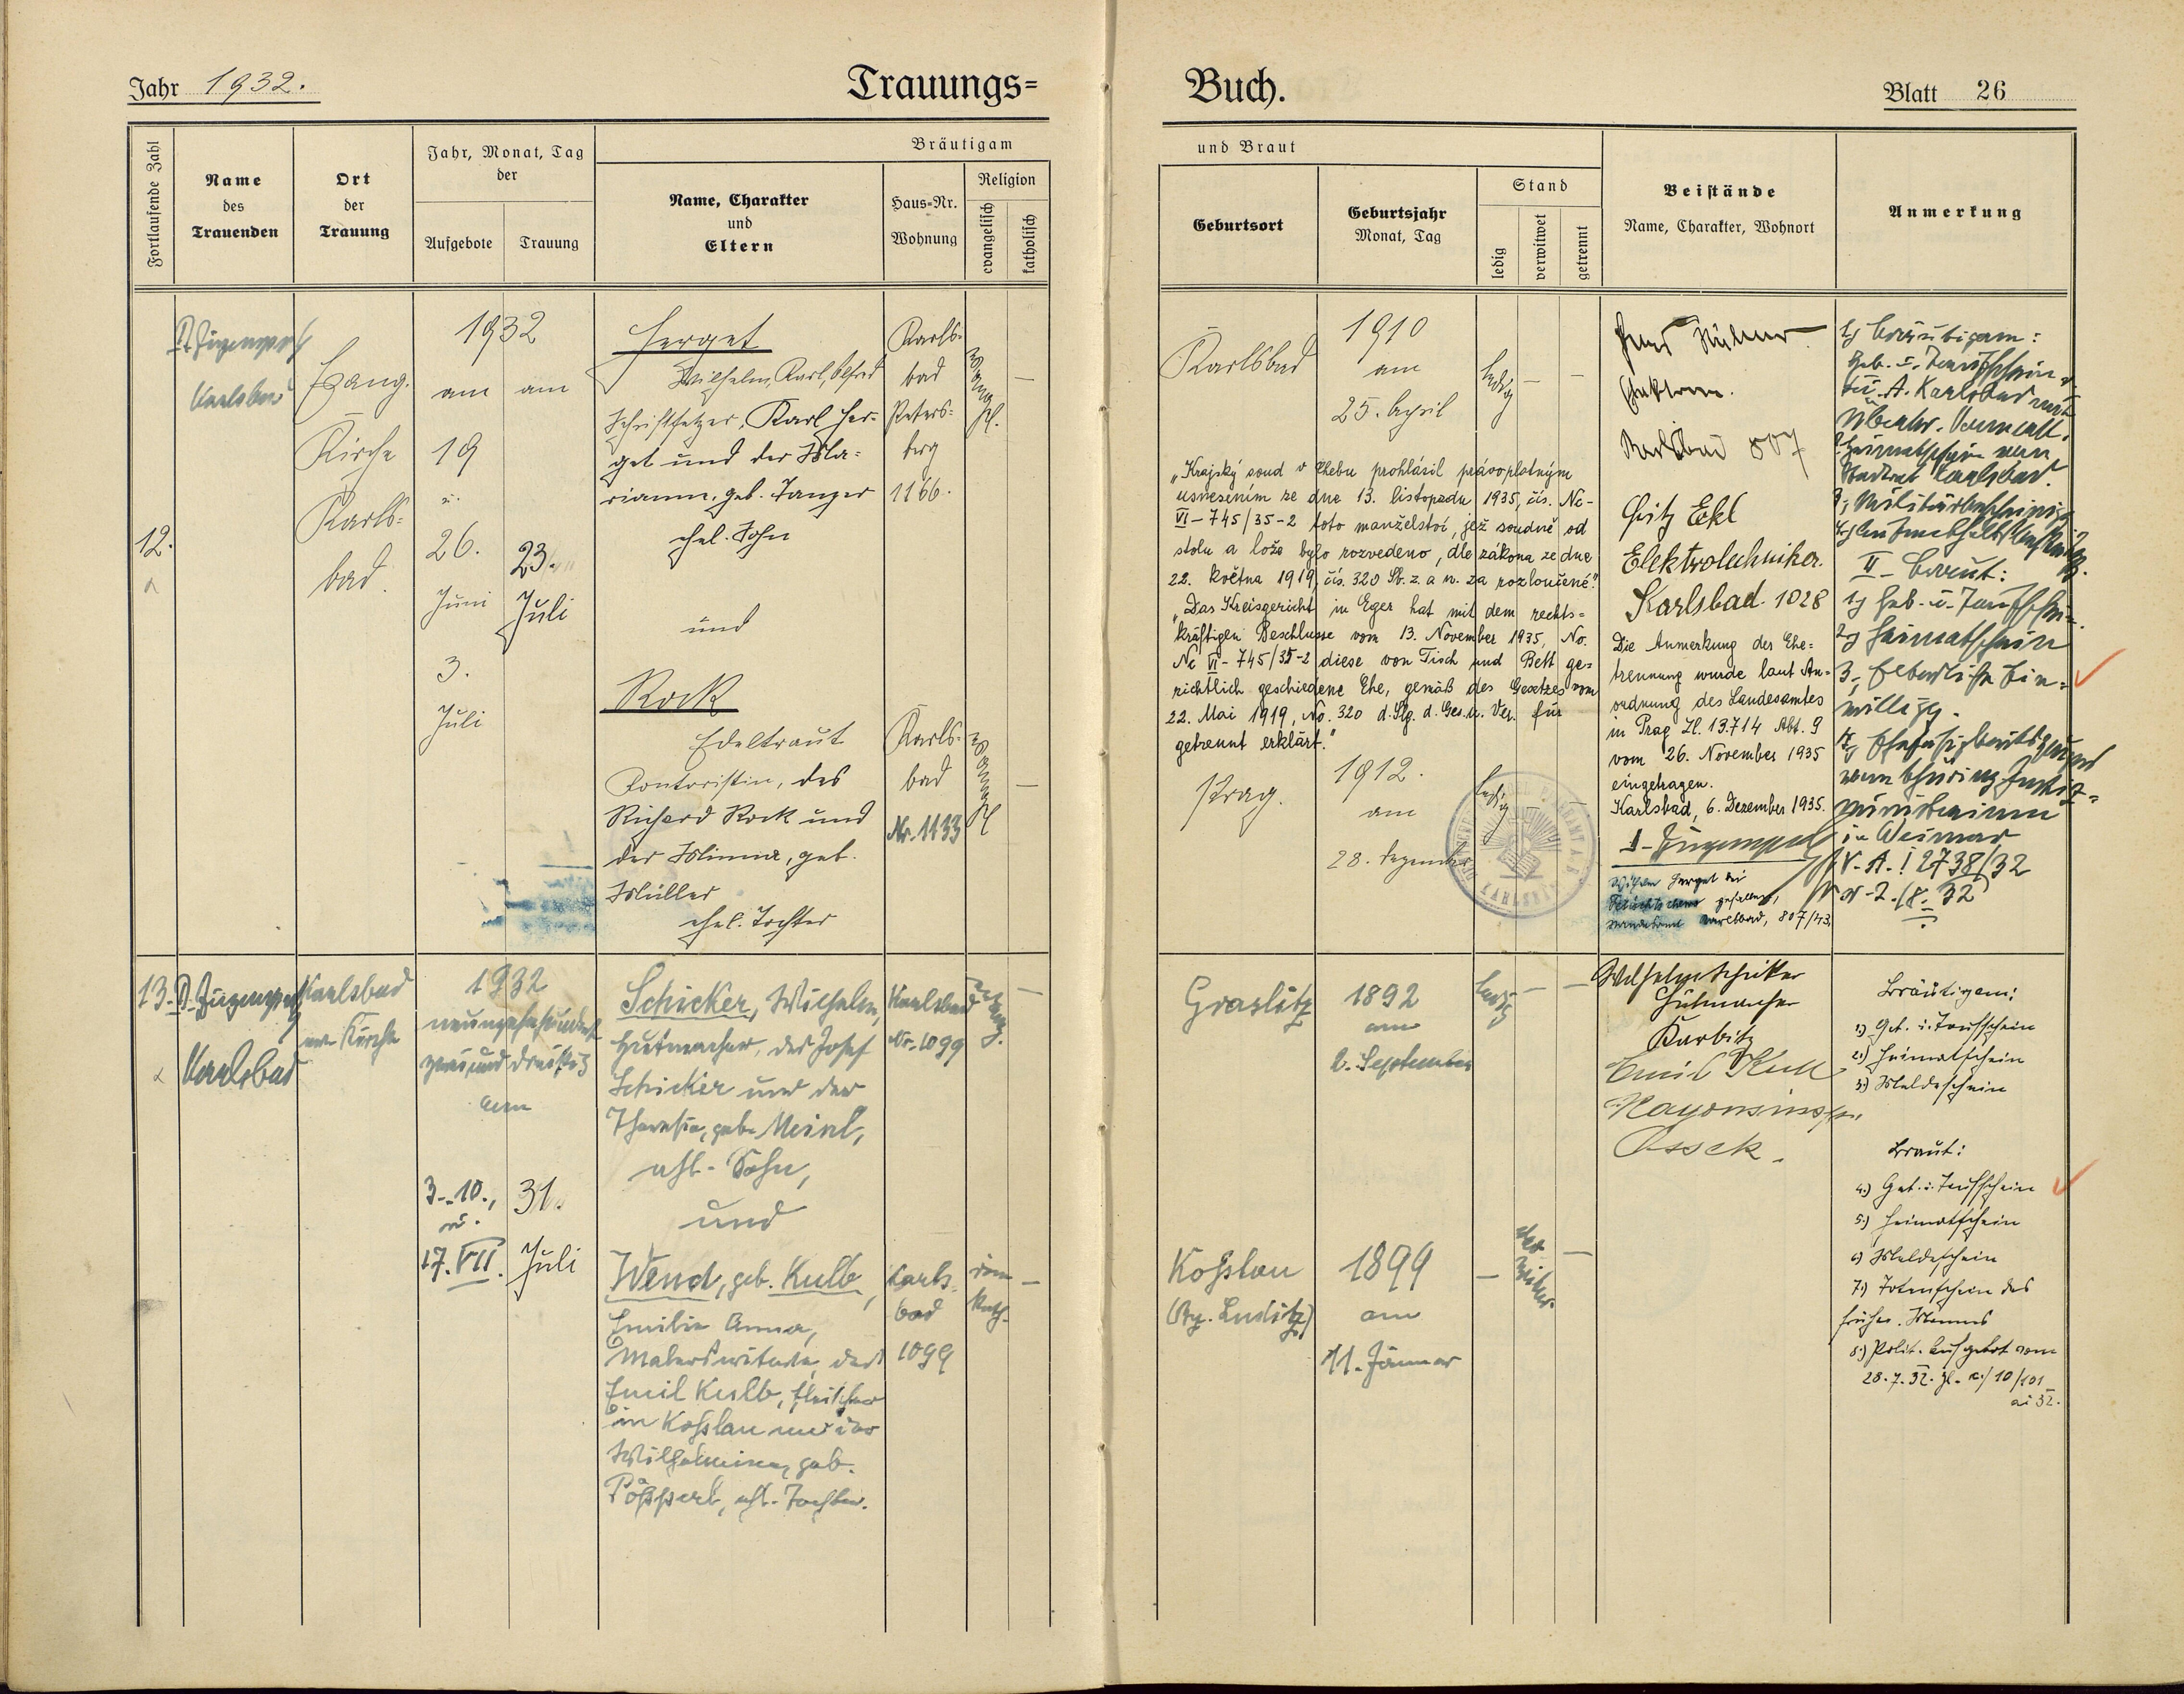 Jahr 1932.
Trauungs=
Buch.
Blatt 26
Fortlaufende Zahl
Name
des
Trauenden
Ort
der
Trauung
Jahr, Monat, Tag
der
Aufgebote
Trauung
Bräutigam
Name, Charakter
und
Eltern
Haus-Nr.
Wohnung
Religion
evangelisch
katholisch
und Braut
Geburtsort
Geburtsjahr
Monat, Tag
Stand
ledig
verwitwet
getrennt
Beistände
Name, Charakter, Wohnort
Anmerkung
12.
Karlsbad
Evang.
Kirche
Karls=
bad.
1932
am am
19
u.
26.
Juni
3.
Juli
23.
Juli
Herget
Wilhelm, Karl, Alfred
Schriftsetzer, Karl Her=
get und der Ma=
rianne, geb. Tanzer
ehel. Sohn
und
Rock
Edeltraut
Kontoristin, des
Richard Rock und
der Minna, geb.
Müller
ehel. Tochter
Karls=
bad
Peters=
berg
1166.
evangel.
—
Karls=
bad
Nr. 1133
evangel
—
Karlsbad
1910
am
25. April
ledig
— —
„Krajský soud v Chebu prohlásil právoplatným
usnesením ze dne 13. listopadu 1935, čís. Nc-
VI-745/35-2 toto manželství, jež soudně od
stolu a lože bylo rozvedeno, dle zákona ze dne
22. května 1919, čís. 320 Sb. z. a n. za rozloučené."
„Das Kreisgericht in Eger hat mit dem rechts=
kräftigen Beschlusse vom 13. November 1935, No.
Nc VI-745/35-2 diese von Tisch und Bett ge=
richtlich geschiedene Ehe, gemäß des Gesetzes vom
22. Mai 1919, No. 320 d. Slg. d. Ges. u. Ver. für
getrennt erklärt."
Prag.
1912.
am
28. Dezember
ledig
—
KARLSBAD
Karlsbad 807
Fritz Ekl
Elektrotechniker.
Karlsbad. 1028
Die Anmerkung der Ehe=
trennung wurde laut An=
ordnung des Landesamtes
in Prag Zl. 13.714 Abt. 9
vom 26. November 1935
eingetragen.
Karlsbad, 6. Dezember 1935.
Wilhelm Herget bei
gefallen,
Standesamt Karlsbad, 807/43.
1) Bräutigam:
Geb. u. Taufschein
A. Karlsbad
2) Heimatschein vom
Stadtrat Karlsbad.
II- Braut:
1) Geb. u. Taufschein
2) Heimatschein
3., Elterliche Ein=
willigg.
4, Ehefähigkeitszeugnis
vom thüring. Justiz=
ministerium
in Weimar
V.A.! 2738/32
8. 32
13.
Karlsbad
Karlsbad
ev. Kirche
1932
neunzehnhundert
zweiunddreißig
am
3., 10.,
u.
17. VII.
31.
Juli
Schicker, Wilhelm,
Hutmacher, des Josef
Schicker und der
Theresia, geb. Meinl,
ehl. Sohn,
und
Wend, geb. Kulb,
Emilie Anna,
Malerswitwe, des
Emil Kulb, Fleischer
in Koßlau und der
Wilhelmine, geb.
Pöpperl, ehl. Tochter.
Karlsbad
Nr. 1099
evang.
—
Karls=
bad
1099
röm
kath.
—
Graslitz
1892
am
2. September
ledig
— —
Koßlau
(Bz. Luditz)
1899
am
11. Jänner
—
verwitwet
—
Wilhelm Schicker
Hutmacher
Karbitz
Emil Kulb
Ossek.
Bräutigam:
1.) Geb. u. Taufschein
2.) Heimatschein
3.) Meldeschein
Braut:
4.) Geb. u. Taufschein
5.) Heimatschein
6.) Meldeschein
7.) Totenschein des
früher. Mannes
8.) Polit. Aufgebot vom
28. 7. 32. Zl. 10/101
ai 32.